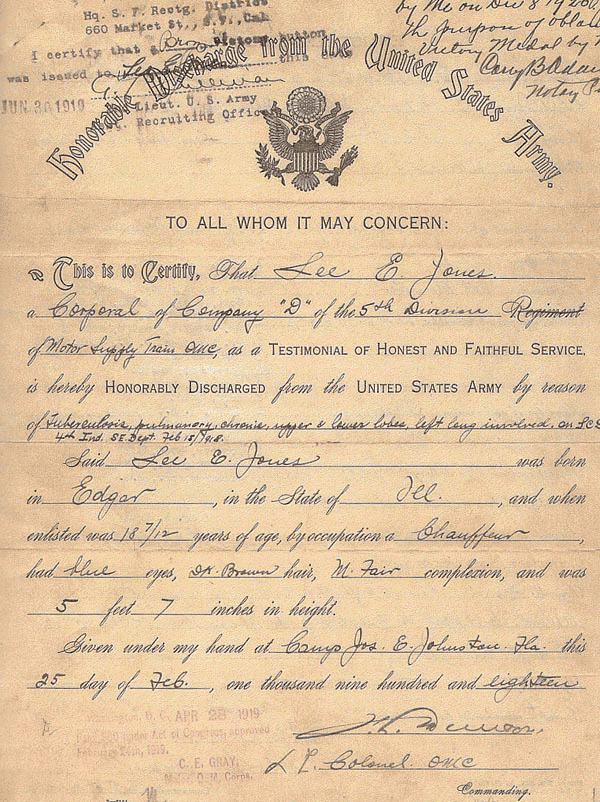 Hq. S. F. Rectg. District
660 Market St., S.F., Cal
I certify that a Bronze Victory button
was issued to Lee E. Jones this date
JUN 30 1919
Lieut. U. S. Army
Recruiting Officer
by me on Dec 8 1920
the purpose of obtain
Victory Medal by
Notary P
Honorable Discharge from the United States Army.
TO ALL WHOM IT MAY CONCERN:
This is to Certify, That Lee E Jones
a Corporal of Company "D" of the 5th Division Regiment
of Motor Supply Train QMC, as a TESTIMONIAL OF HONEST AND FAITHFUL SERVICE,
is hereby HONORABLY DISCHARGED from the UNITED STATES ARMY by reason
of Tuberculosis, pulmonary, chronic, upper & lower lobes, left lung involved. on SCD
4th Ind. SE. Dept. Feb 15/1918.
Said Lee E. Jones was born
in Edgar, in the State of Ill., and when
enlisted was 18 7/12 years of age, by occupation a Chauffeur,
had blue eyes, Dk. Brown hair, M. Fair complexion, and was
5 feet 7 inches in height.
Given under my hand at Camp Jos. E. Johnston. Fla. this
25 day of Feb., one thousand nine hundred and eighteen
Washington, D. C. APR 28 1919
Paid $60 under Act of Congress, approved
February 24th, 1919.
C. E. GRAY,
Q. M. Corps.
Lt. Colonel. QMC
Commanding.